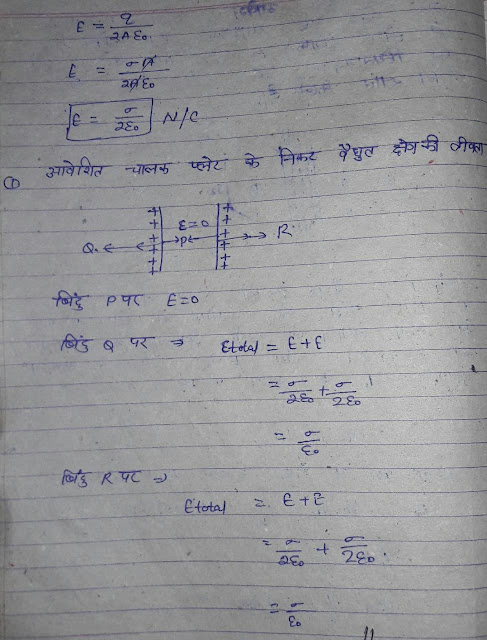 E = q / 2Aε₀
E = σA / 2Aε₀
E = σ / 2ε₀ N/C
① आवेशित चालक प्लेट के निकट वैद्युत क्षेत्र की तीव्रता
+ +
+ E=0 +
Q ← ← + →P← + →→ R
+ +
+ +
बिंदु P पर E=0
बिंदु Q पर ⇒ Etotal = E+E
= σ/2ε₀ + σ/2ε₀
= σ/ε₀
बिंदु R पर ⇒
Etotal = E+E
= σ/2ε₀ + σ/2ε₀
= σ/ε₀